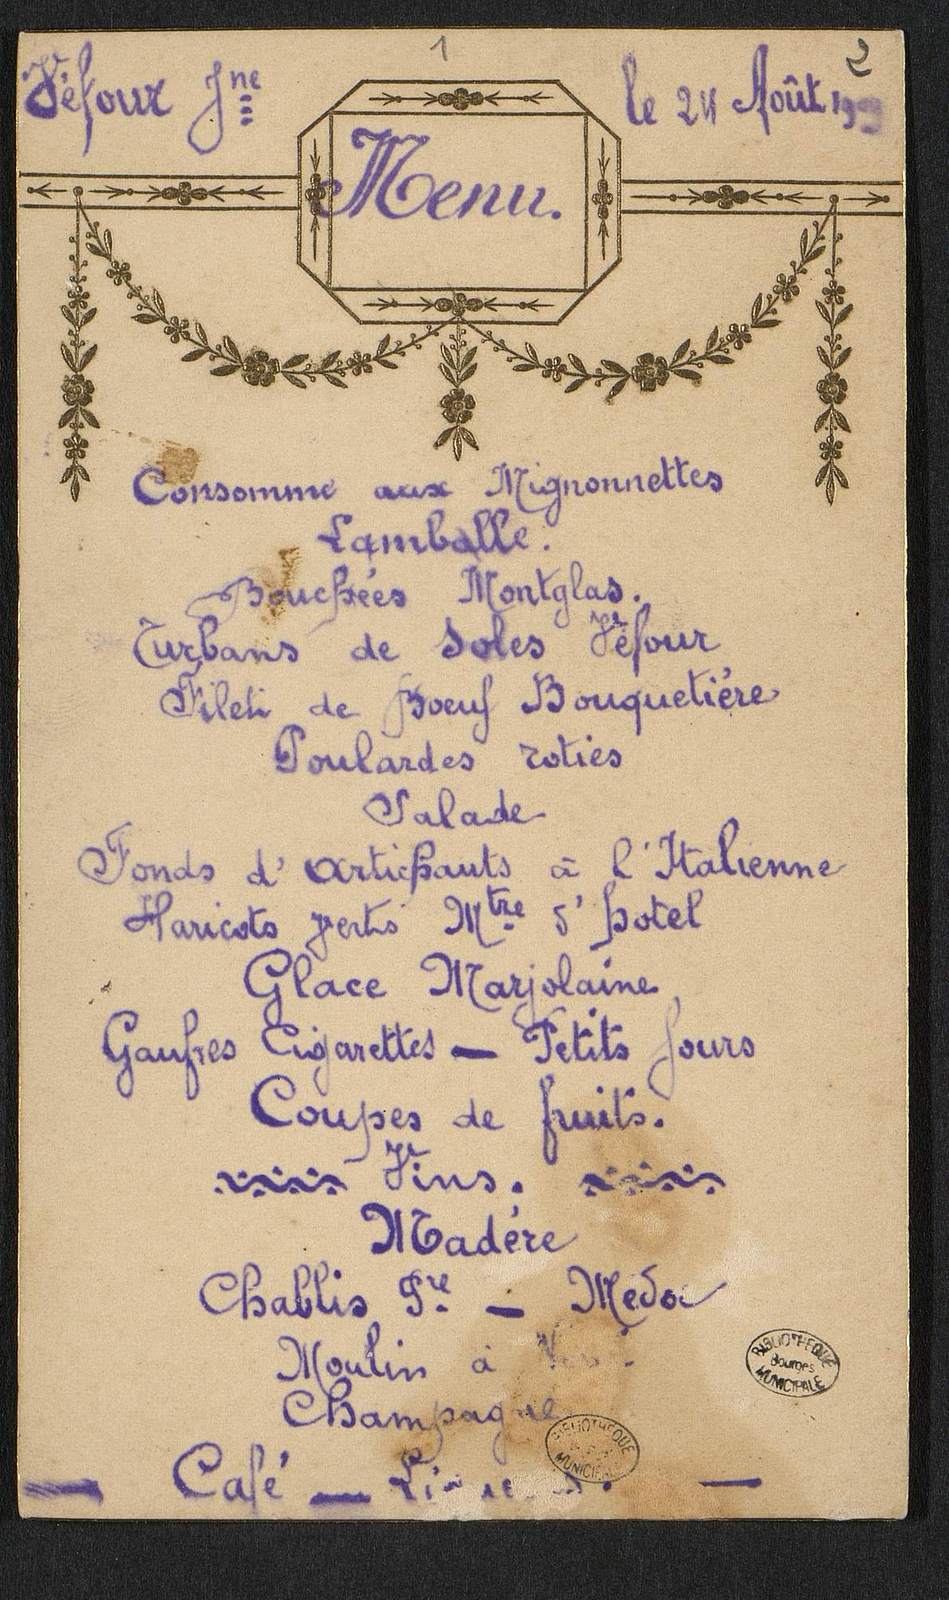 1
2
Véfour Jne
le 24 Août
Menu.
Consommé aux Mignonnettes
Lamballe.
Bouchées Montglas.
Turbans de Soles Véfour
Filets de Boeuf Bouquetiére
Poulardes roties
Salade
Fonds d'artichauts à l'Italienne
Haricots verts Mtre d'hotel
Glace Marjolaine
Gaufres Cigarettes — Petits fours
Coupes de fruits.
Vins.
Madére
Chablis Pre — Médoc
Moulin à
Champagne
BIBLIOTHEQUE
Bourges
MUNICIPALE
BIBLIOTHEQUE
MUNICIPALE
— Café — —